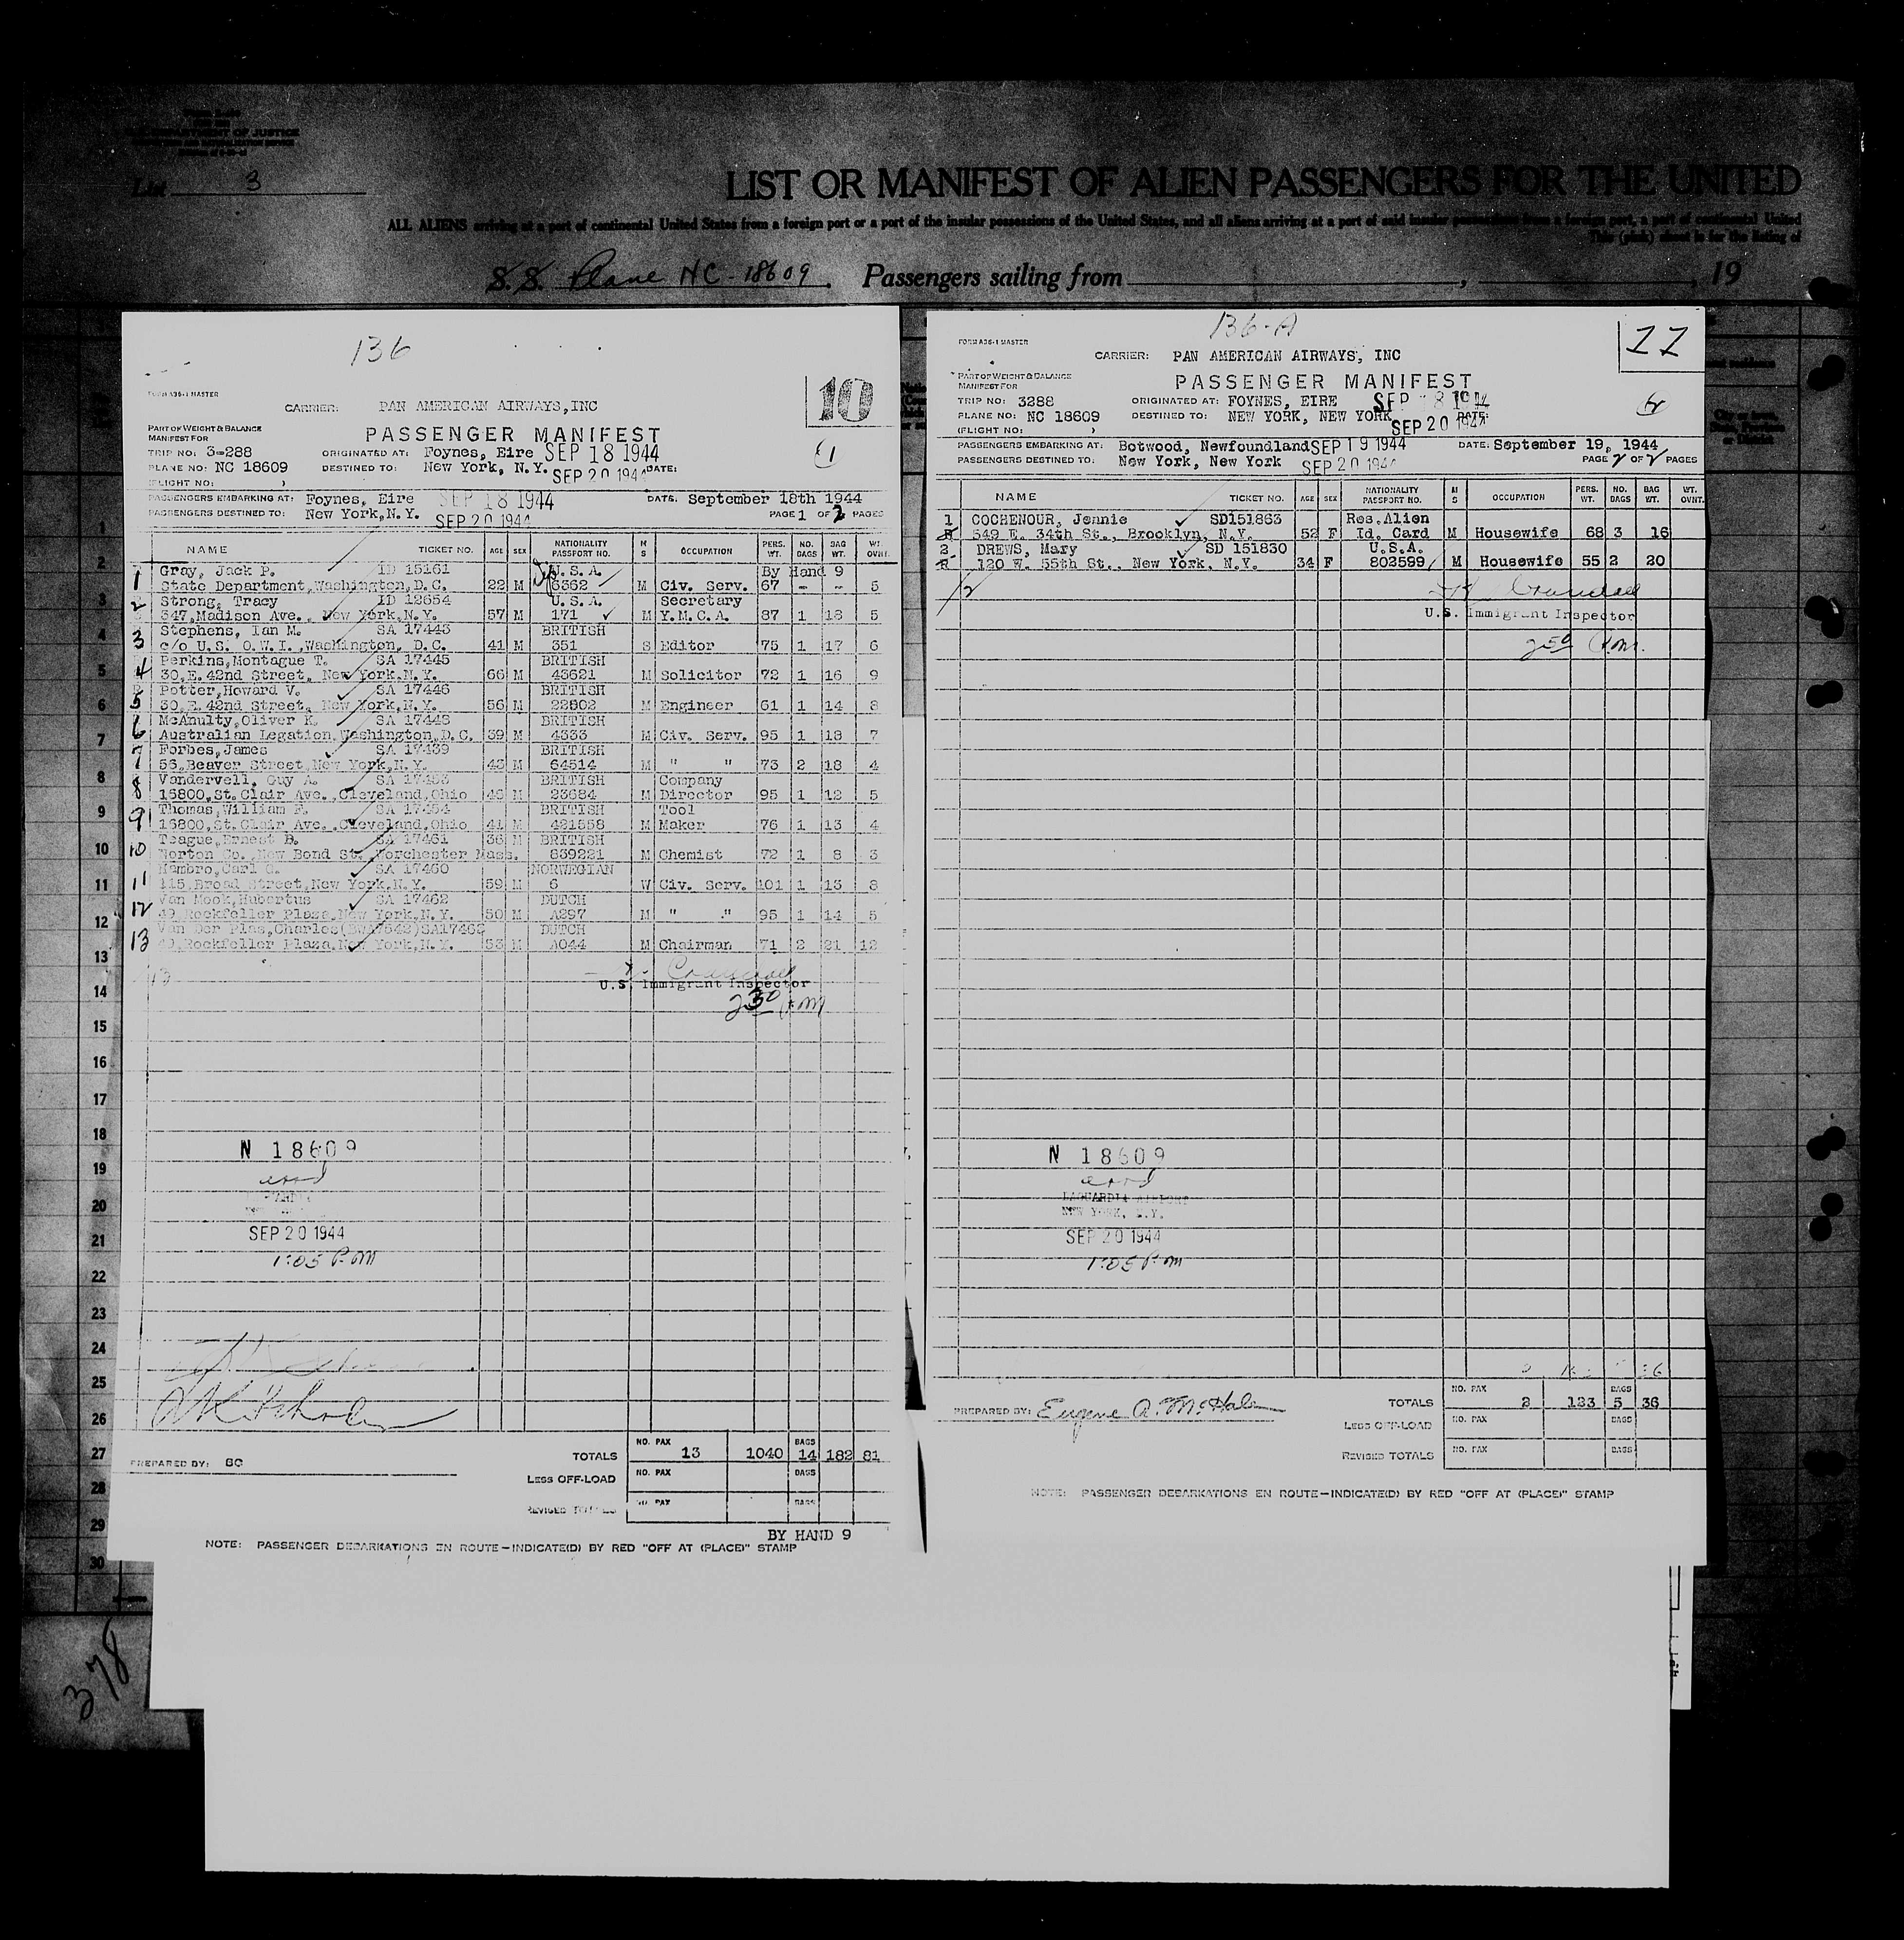 DEPARTMENT OF JUSTICE
List 3
LIST OR MANIFEST OF ALIEN PASSENGERS FOR THE UNITED
ALL ALIENS arriving at a port of continental United States from a foreign port or a port of the insular possessions of the United States, and all aliens arriving at a port of said insular possessions from a foreign port, a port of continental United
This (pink) sheet is for the listing of
S.S. Plane NC-18609. Passengers sailing from , , 19
136
10
FORM A36-1 MASTER
CARRIER: PAN AMERICAN AIRWAYS, INC
PART OF WEIGHT & BALANCE
MANIFEST FOR
PASSENGER MANIFEST
1
TRIP NO: 3-288 ORIGINATED AT: Foynes, Eire SEP 18 1944
PLANE NO: NC 18609 DESTINED TO: New York, N.Y. SEP 20 1944 DATE:
(FLIGHT NO: )
PASSENGERS EMBARKING AT: Foynes, Eire SEP 18 1944 DATE. September 18th 1944
PASSENGERS DESTINED TO: New York,N.Y. SEP 20 1944 PAGE 1 OF 2 PAGES
NAME TICKET NO. AGE SEX NATIONALITY PASSPORT NO. M S OCCUPATION PERS. WT. NO. BAGS BAG WT. WT. OVNT.
1 Gray, Jack P. ID 15161 U.S.A. By Hand 9
State Department,Washington,D.C. 22 M 6362 M Civ. Serv. 67 - - 5
2 Strong, Tracy ID 12654 U.S.A. Secretary
347,Madison Ave., New York,N.Y. 57 M 171 M Y.M.C.A. 87 1 18 5
3 Stephens, Ian M. SA 17443 BRITISH
c/o U.S. O.W.I.,Washington, D.C. 41 M 351 S Editor 75 1 17 6
4 Perkins,Montague T. SA 17445 BRITISH
30,E.42nd Street, New York.N.Y. 66 M 43621 M Solicitor 72 1 16 9
5 Potter,Howard V. SA 17446 BRITISH
30,E.42nd Street, New York,N.Y. 56 M 22802 M Engineer 61 1 14 8
6 McAnulty,Oliver K. SA 17448 BRITISH
Australian Legation,Washington,D.C. 39 M 4333 M Civ. Serv. 95 1 18 7
7 Forbes,James SA 17439 BRITISH
56,Beaver Street,New York,N.Y. 43 M 64514 M " " 73 2 18 4
8 Vandervell, Guy A. SA 17453 BRITISH Company
16800,St.Clair Ave.,Cleveland,Ohio 46 M 23684 M Director 95 1 12 5
9 Thomas,William F. SA 17454 BRITISH Tool
16800,St.Clair Ave.,Cleveland,Ohio 41 M 421558 M Maker 76 1 13 4
10 Teague,Ernest B. SA 17461 36 M BRITISH
Norton Co.,New Bond St. Worchester Mass. 839221 M Chemist 72 1 8 3
11 Hambro,Carl J. SA 17460 NORWEGIAN
115,Broad Street,New York,N.Y. 59 M 6 W Civ. Serv. 101 1 13 8
12 Van Mook,Hubertus SA 17462 DUTCH
49,Rockfeller Plaza,New York,N.Y. 50 M A297 M " " 95 1 14 5
13 Van Der Plas,Charles SA17463 DUTCH
49,Rockfeller Plaza,New York,N.Y. 53 M A044 M Chairman 71 2 21 12
13
U.S. Immigrant Inspector
2 30 P.M
N 18609
SEP 20 1944
1:05 P.M
PREPARED BY: BC
TOTALS NO. PAX 13 1040 BAGS 14 182 81
LESS OFF-LOAD NO. PAX BAGS
REVISED TOTALS NO. PAX BAGS
BY HAND 9
NOTE: PASSENGER DEBARKATIONS EN ROUTE—INDICATE(D) BY RED "OFF AT (PLACE)" STAMP
136-A
11
FORM A36-1 MASTER
CARRIER: PAN AMERICAN AIRWAYS, INC
PART OF WEIGHT & BALANCE
MANIFEST FOR
PASSENGER MANIFEST
TRIP NO: 3288 ORIGINATED AT: FOYNES, EIRE SEP 18 1944
PLANE NO: NC 18609 DESTINED TO: NEW YORK, NEW YORK SEP 20 1944 DATE:
(FLIGHT NO: )
PASSENGERS EMBARKING AT: Botwood, Newfoundland SEP 19 1944 DATE: September 19, 1944
PASSENGERS DESTINED TO: New York, New York SEP 20 1944 PAGE 2 OF 2 PAGES
NAME TICKET NO. AGE SEX NATIONALITY PASSPORT NO. M S OCCUPATION PERS. WT. NO. BAGS BAG WT. WT. OVNT.
1 COCHENOUR, Jennie SD151863 Res.Alien
549 E. 34th St., Brooklyn, N.Y. 52 F Id. Card M Housewife 68 3 16
2 DREWS, Mary SD 151830 U.S.A.
120 W. 55th St., New York, N.Y. 34 F 802599 M Housewife 55 2 20
U.S. Immigrant Inspector
2 50 P.M.
N 18609
LAGUARDIA AIRPORT
NEW YORK, N.Y.
SEP 20 1944
1:05 P.M
PREPARED BY: Eugene A. McHale
TOTALS NO. PAX 2 123 BAGS 5 36
LESS OFF-LOAD NO. PAX BAGS
REVISED TOTALS NO. PAX BAGS
NOTE: PASSENGER DEBARKATIONS EN ROUTE—INDICATE(D) BY RED "OFF AT (PLACE)" STAMP
1
2
3
4
5
6
7
8
9
10
11
12
13
14
15
16
17
18
19
20
21
22
23
24
25
26
27
28
29
30
378